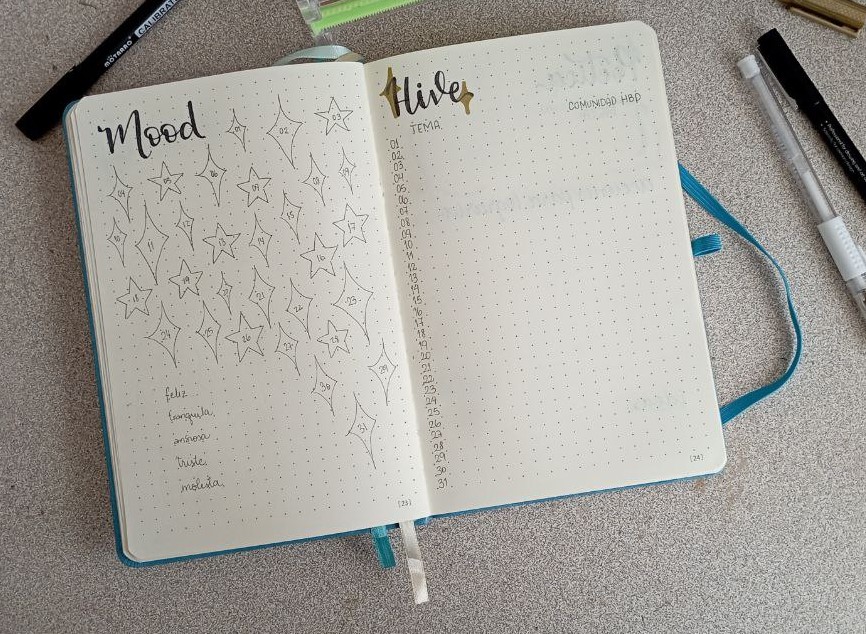 Mood
01
02
03
04
05
06
07
08
09
10
11
12
13
14
15
16
17
18
19
20
21
22
23
24
25
26
27
28
29
30
31
feliz
tranquila
ansiosa
triste
molesta
[23]
Hive
TEMA
COMUNIDAD HBD
01
02
03
04
05
06
07
08
09
10
11
12
13
14
15
16
17
18
19
20
21
22
23
24
25
26
27
28
29
30
31
[24]